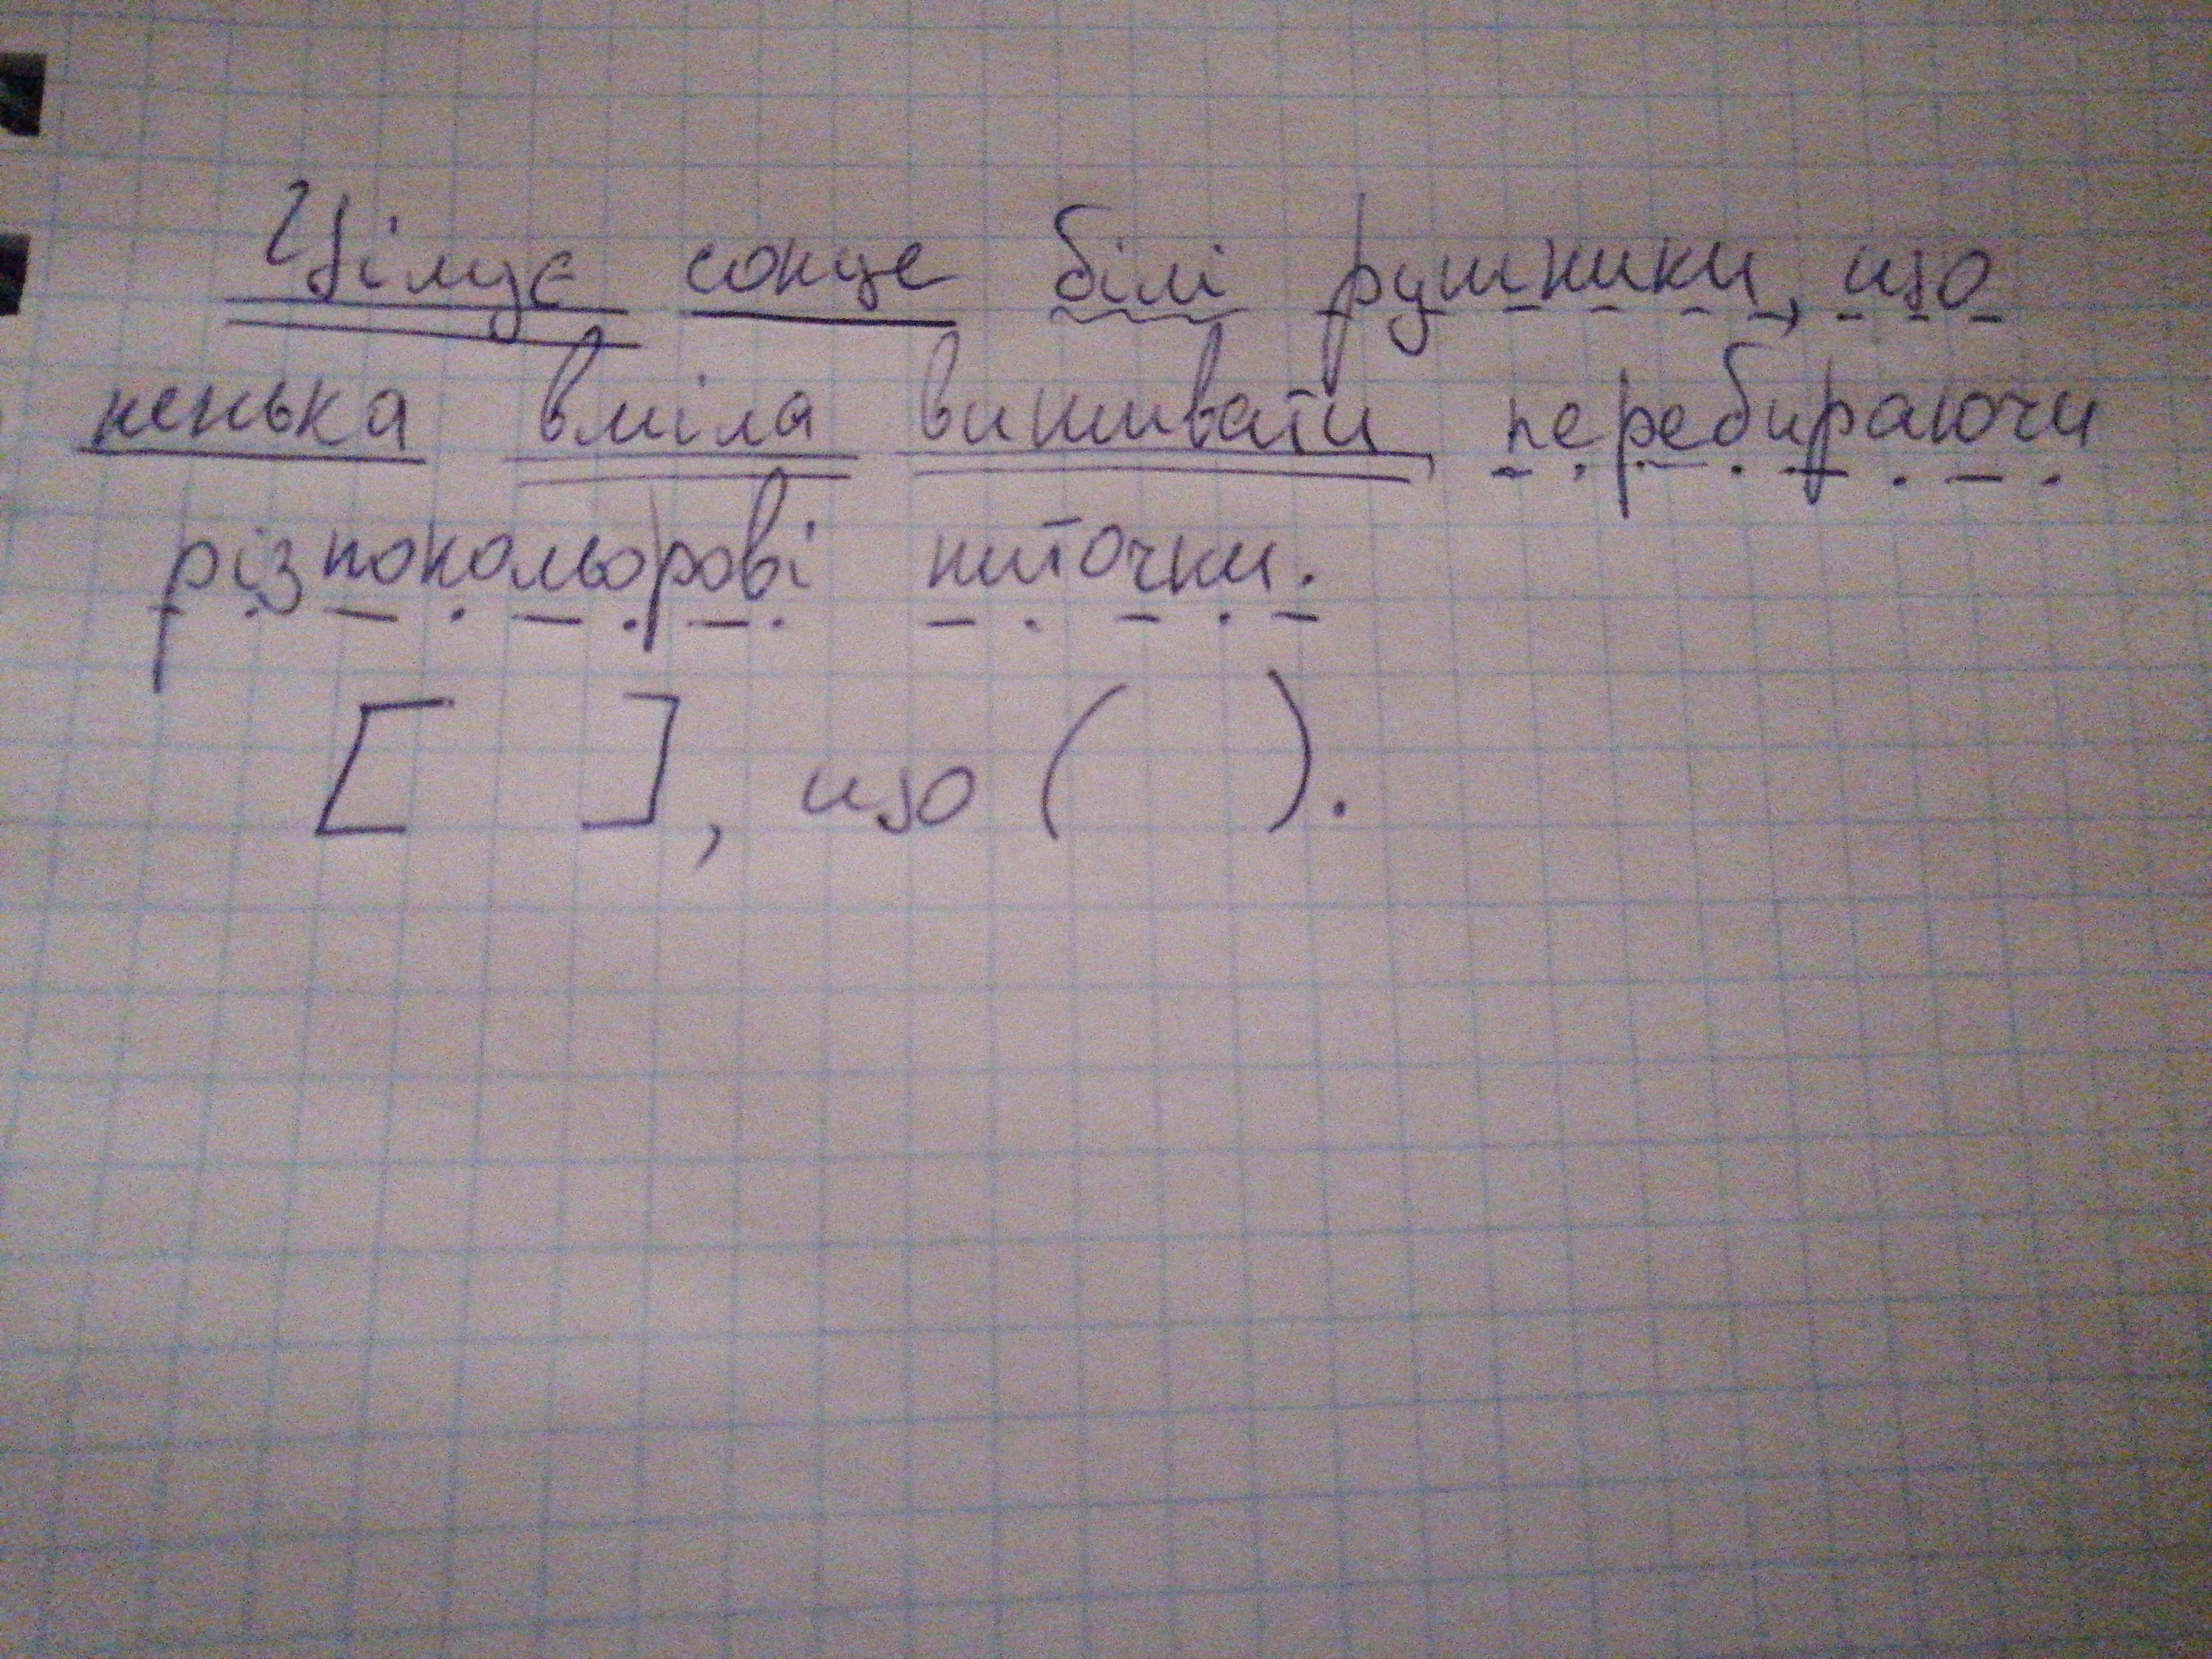 Цілує сонце білі рушники, що
ненька вміла вишивати, перебираючи
різнокольорові ниточки.
[ ], що ( ).